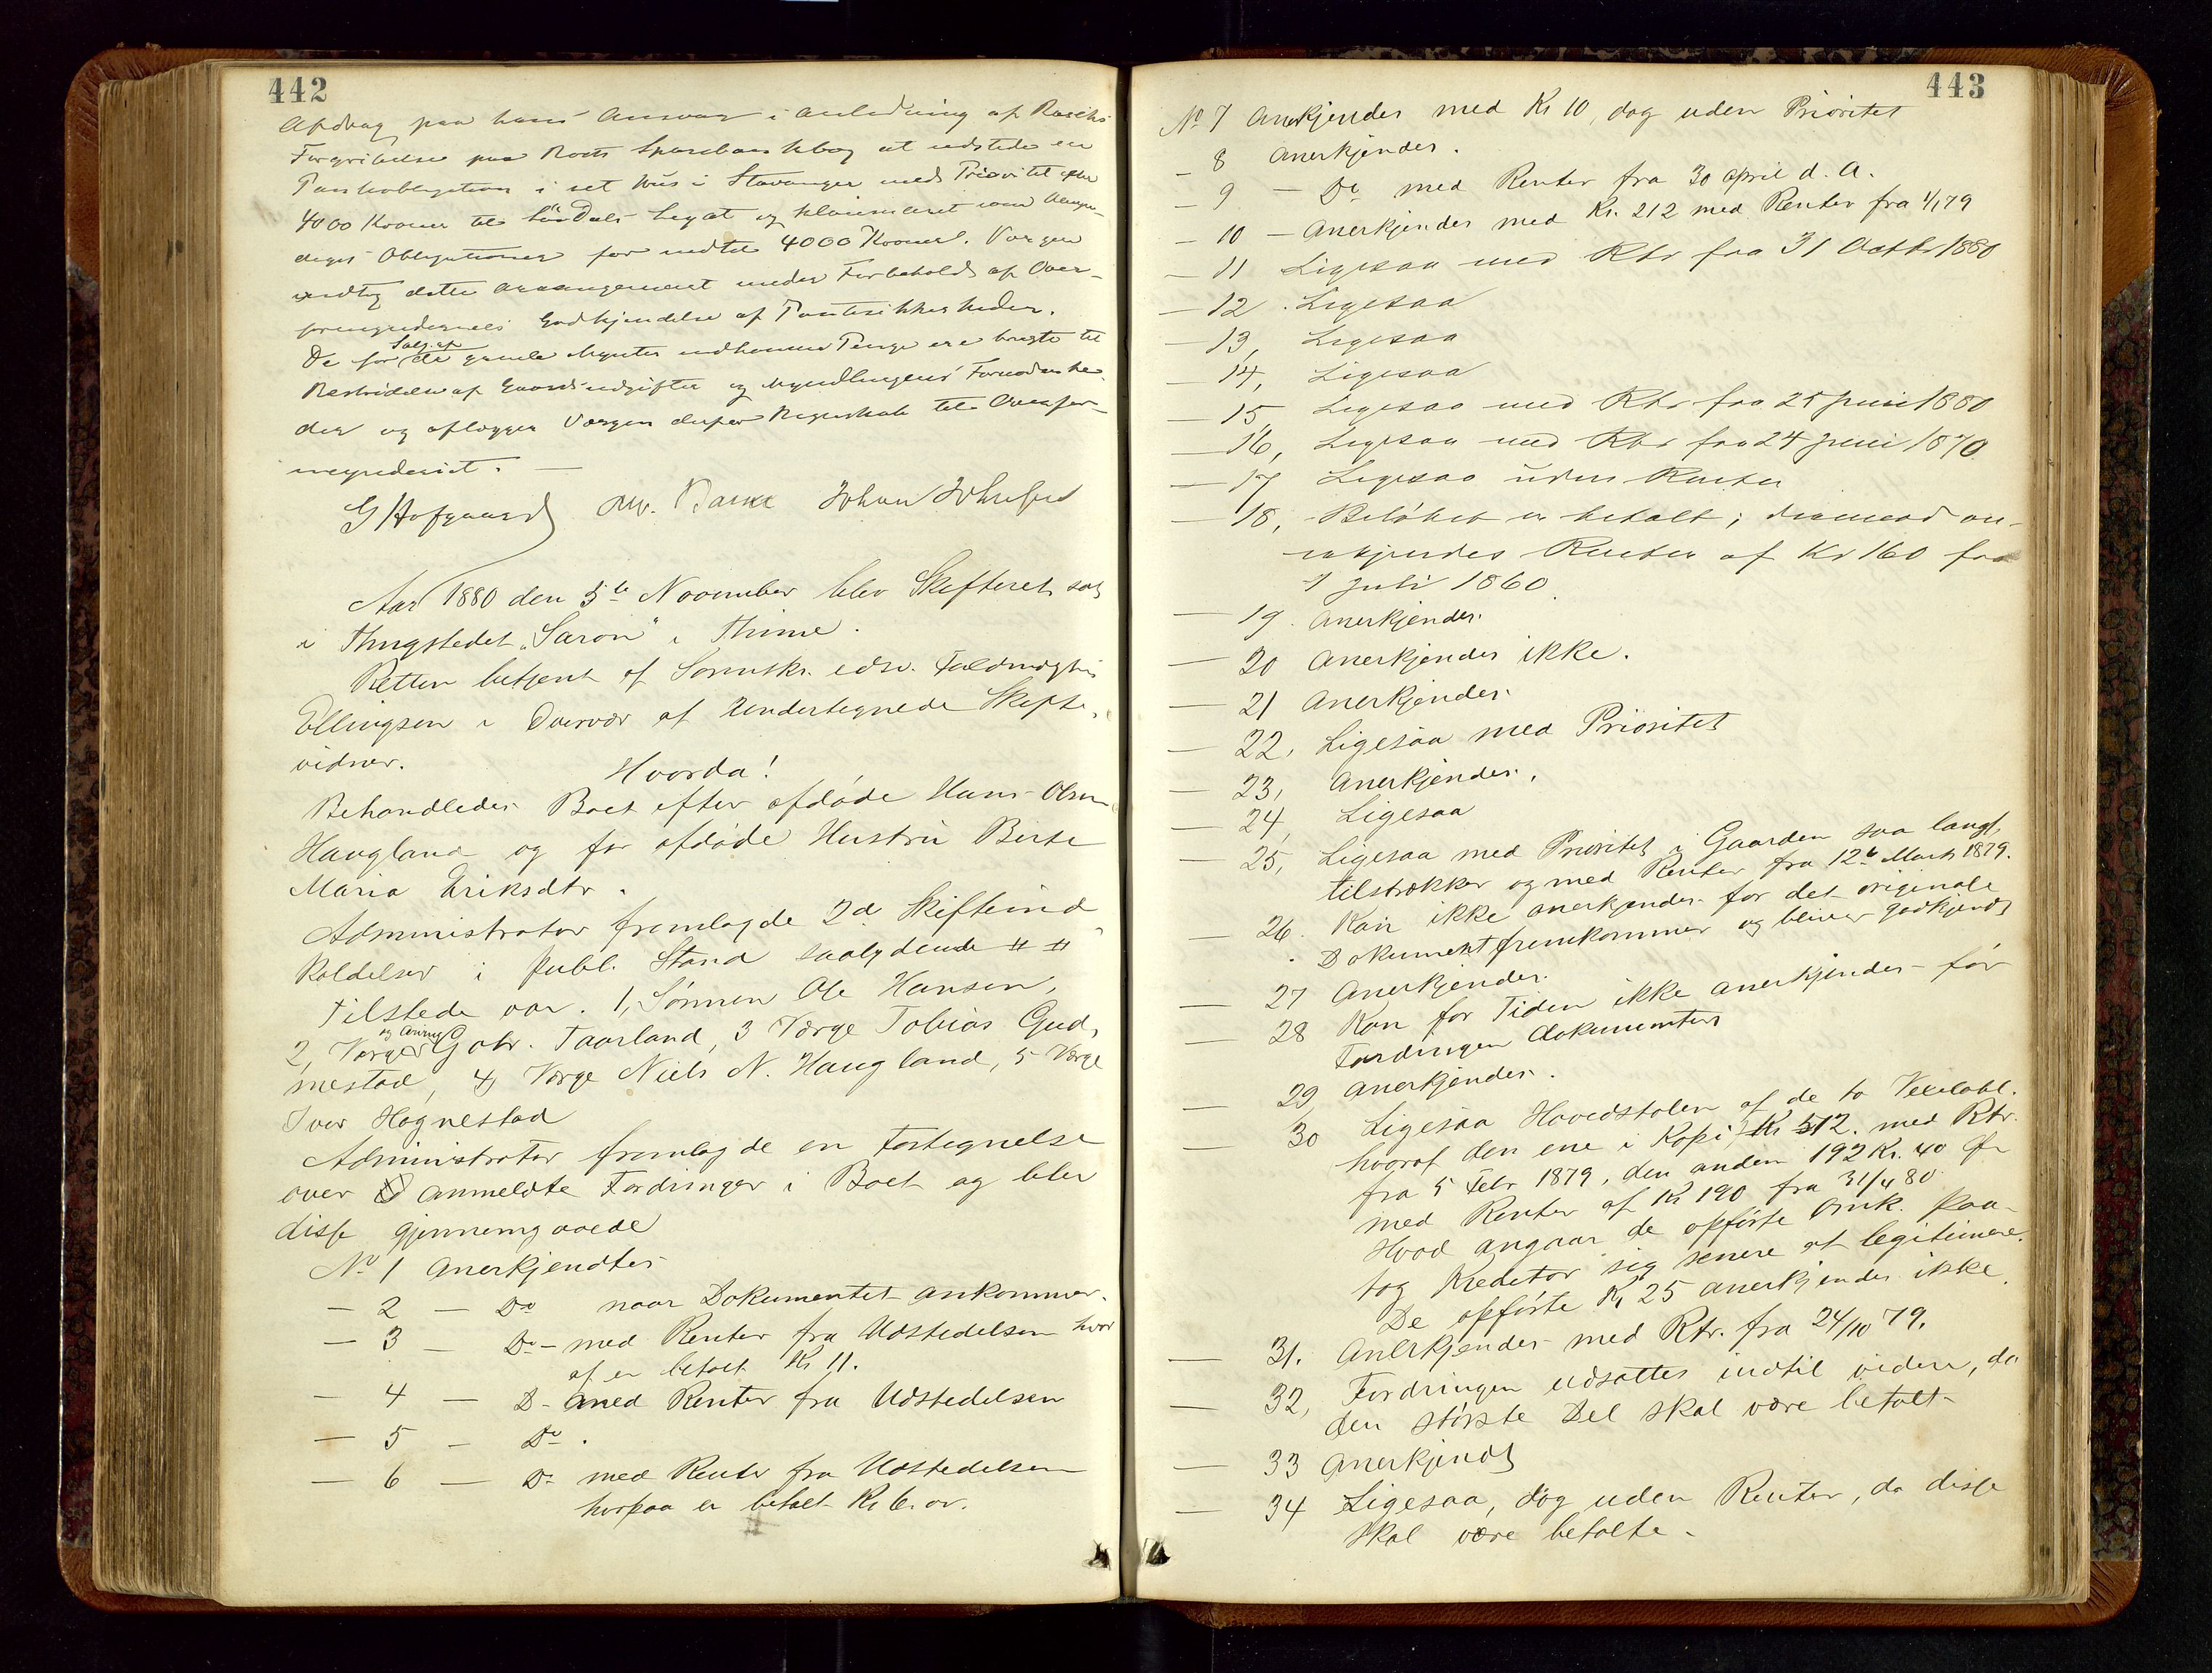 442
Afdrag paa hans Ansvar i Anledning af Raschs
Forgribelse paa Sparebankbog at udstede en
Panteobligation i set Hus i Stavanger med Prioritet efter
4000 Kroner til Legat og
Obligationer for indtil 4000 Kroner. Vergen
dette Arrangement under Forbehold af Over-
Godkjendelse af Pantesikkerheden.
De for Salg af de gamle Mynter indkomne Penge ere brugte til
Bestridelse af Gaardsudgifter og Myndlingens Fornødenhe-
der og aflægger Værgen derfor Regnskab til Overfor-
mynderiet. —
G Hofgaard Johan Johnsen
Aar 1880 den 5te November blev Skifteret sat
i Thingstedet "Saron" i Thime.
Retten betjent af Sorenskr. edsv. Fuldmægtig
Ellingsen i Overvær af Undertegnede Skifte-
vidner.
Hvorda!
Behandledes Boet efter afdøde Hans Olsen
Haugland og før afdøde Hustru Birte
Maria Eriksdtr.
Administrator fremlagde 2d Skifteind
kaldelser i publ. Stand saalydende # #
Tilstede var. 1, Sønnen Ole Hansen,
2, Værge og Gabr. Taarland, 3 Værge Tobias Gud-
mestad, 4, Værge Niels N. Haugland, 5 Værge
Iver Hognestad
Administrator fremlagde en Fortegnelse
over anmeldte Fordringer i Boet og blev
disse gjennemgaaede
No 1 Anerkjendtes
— 2 — Do naar Dokumentet ankommer.
— 3 — Do — med Renter fra Udstedelsen hvor
af er betalt Kr 11.
— 4 — Do med Renter fra Udstedelsen
— 5 — Do.
— 6 — Do med Renter fra Udstedelsen
horpaa er betalt Kr
443
No 7 Anerkjendes med Kr 10, dog uden Prioritet
— 8 Anerkjendes.
— 9 — Do med Renter fra 30 april d. A.
— 10 — Anerkjendes med Kr. 212 med Renter fra 1/1 79
— 11 Ligesaa med Rtr fra 31 Octbr 1880
— 12. Ligesaa
— 13, Ligesaa
— 14, Ligesaa
— 15, Ligesaa med Rtr fra 25 juni 1880
— 16, Ligesaa med Rtr fra 24 juni 1870
— 17 Ligesaa uden Renter
— 18, Beløbet er betalt; derimod an-
erkjendes Renter af Kr 160 fra
1 Juli 1860.
— 19. Anerkjendes.
— 20 Anerkjendes ikke.
— 21 Anerkjendes
— 22, Ligesaa med Prioritet
— 23, Anerkjendes.
— 24, Ligesaa
— 25, Ligesaa med Prioritet i Gaarden saa langt
tilstrækker og med Renter fra 12te Marts 1879.
— 26. Kan ikke anerkjendes før det originale
Dokument fremkommer og bliver godkjendt
— 27 Anerkjendes.
— 28 Kan for Tiden ikke anerkjendes før
Fordringen dokumenteres
— 29, Anerkjendes.
— 30 Ligesaa Hovedstolen af de to Vexelobl.
hvoraf den ene i Kopi, Kr 512. med Rtr.
fra 5 Febr 1879, den anden 192 Kr. 40 Øre
med Renter af Kr 190 fra 31/4 80.
Hvad angaar de opførte Omk. paa-
tog Kreditor sig senere at legitimere.
De opførte Kr 25 anerkjendes ikke.
— 31. Anerkjendes med Rtr. fra 24/10 79.
— 32, Fordringen udsættes indtil videre, da
den største Del skal være betalt
— 33 Anerkjendt
— 34 Ligesaa, dog uden Renter, da disse
skal være betalte.